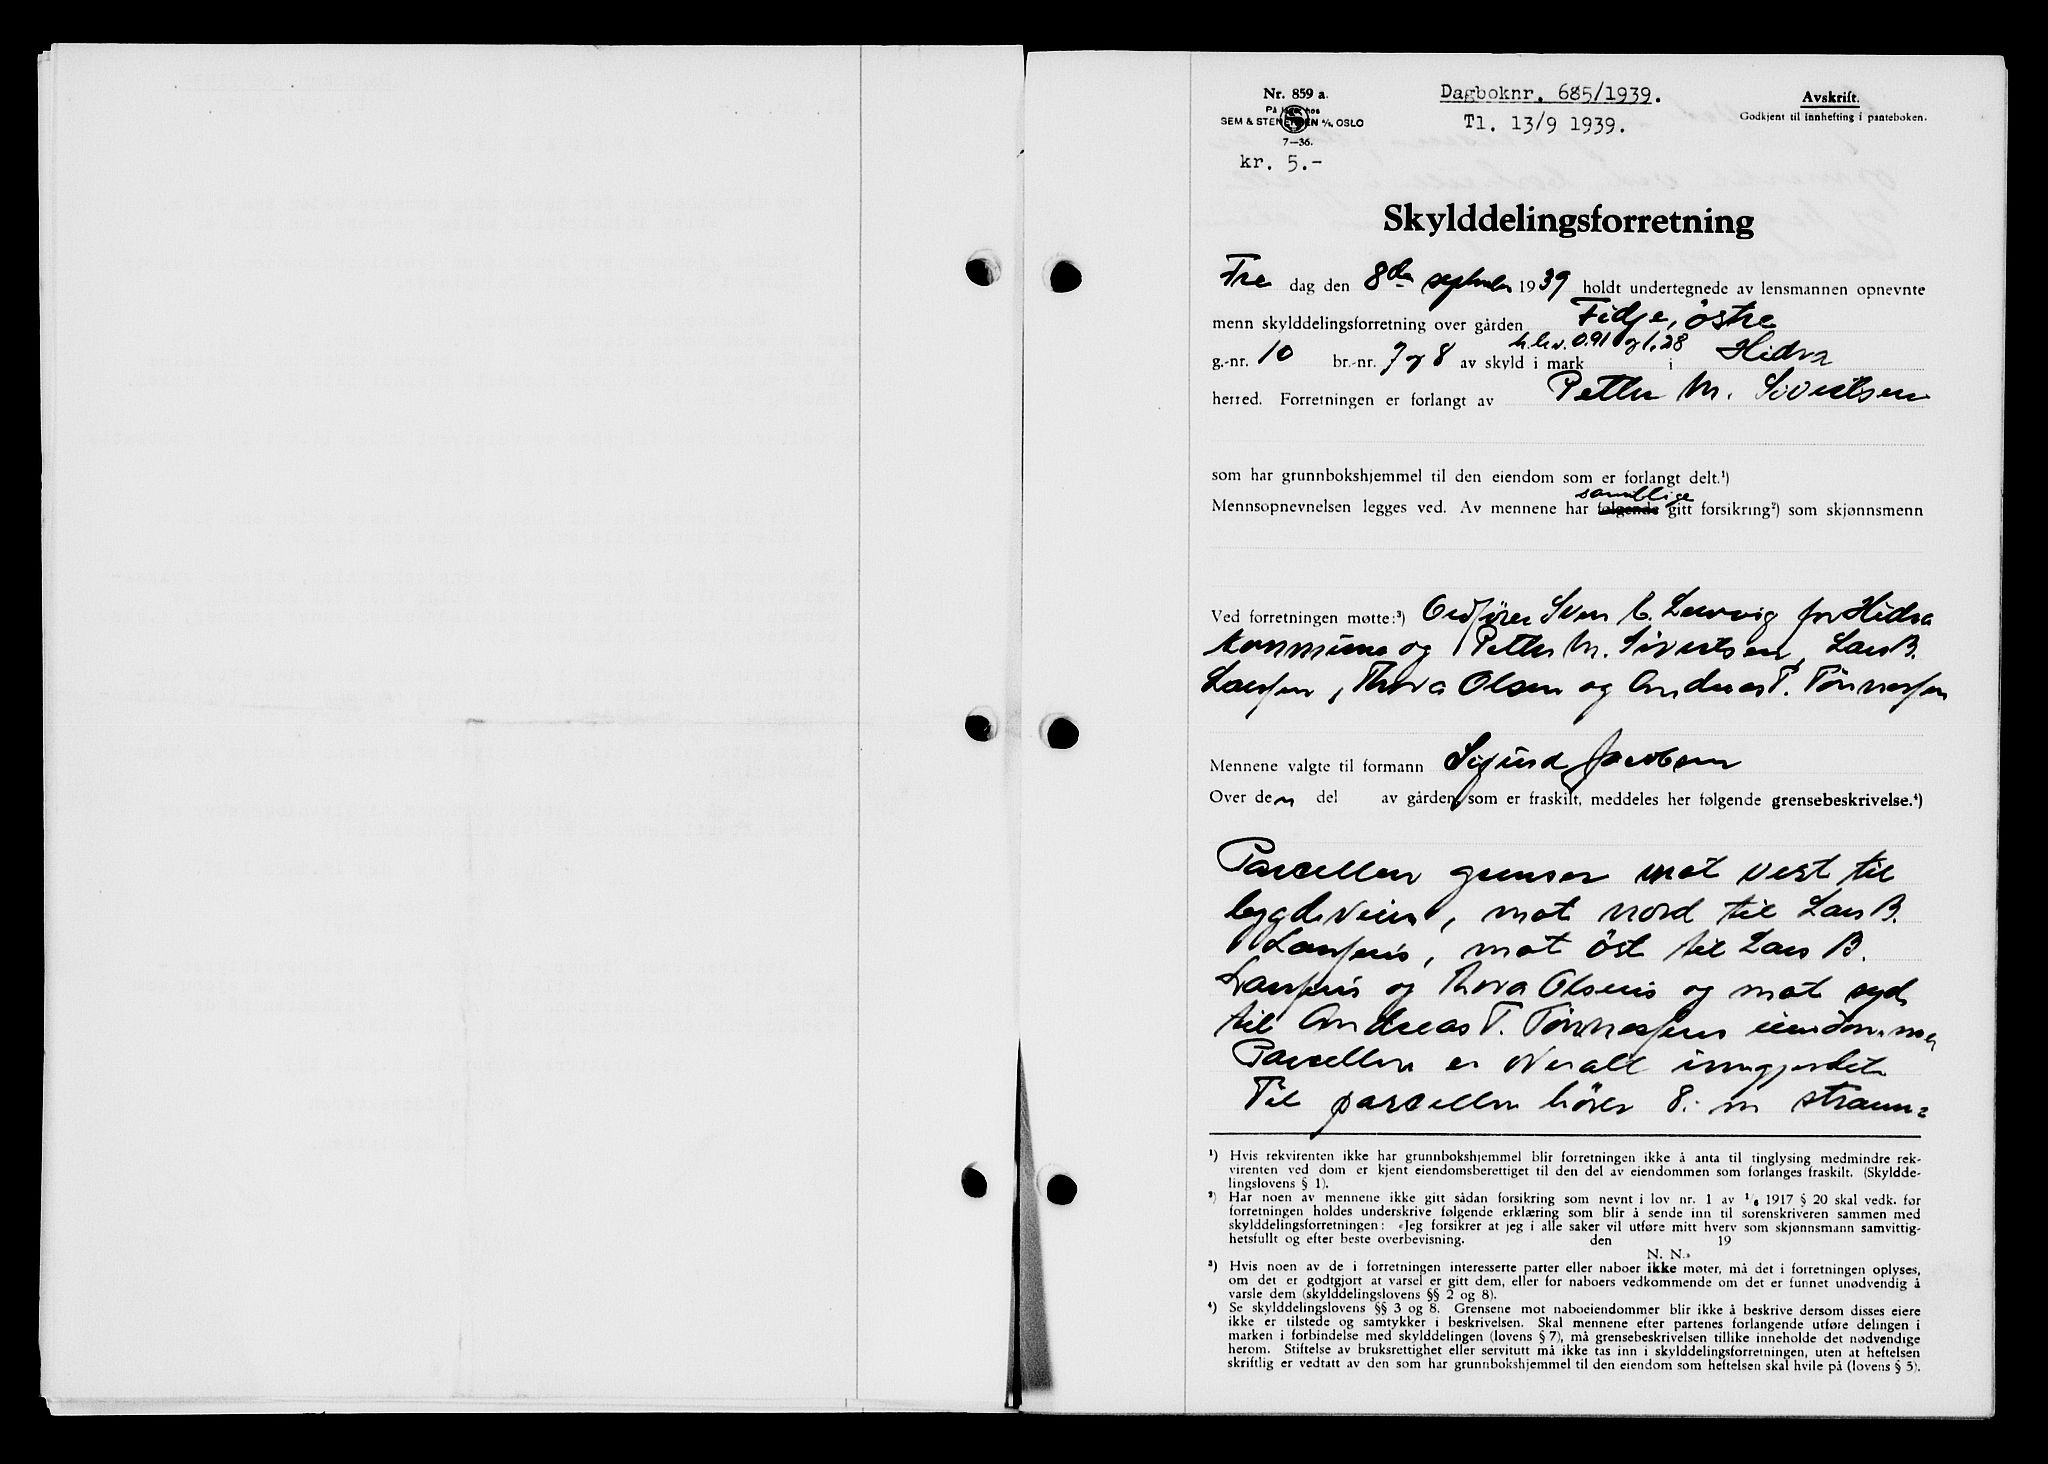 Nr. 859 a.
På lager hos
SEM & STENERSEN A/S, OSLO
7—36.
kr. 5.-
Dagboknr. 685/1939.
Tl. 13/9 1939.
Avskrift.
Godkjent til innhefting i panteboken.
Skylddelingsforretning
Fre dag den 8de september 1939 holdt undertegnede av lensmannen opnevnte
menn skylddelingsforretning over gården Fidje, östre
g.-nr. 10 br.-nr. 7 og 8 av skyld i mark h.h.v. 0.91 og 1,28 i Hidra
herred. Forretningen er forlangt av Petter M. Sivertsen
som har grunnbokshjemmel til den eiendom som er forlangt delt.¹)
Mennsopnevnelsen legges ved. Av mennene har følgende samtlige gitt forsikring²) som skjønnsmenn
Ved forretningen møtte:³) Ordfører Sven C. Lervig for Hidra
kommune og Petter M. Sivertsen, Lars B.
Larsen, Thora Olsen og Andreas T. Tönnessen
Mennene valgte til formann Sigurd Jacobsen
Over den del av gården, som er fraskilt, meddeles her følgende grensebeskrivelse.⁴)
Parcellen grenser mot vest til
bygdeveien, mot nord til Lars B.
Larsens, mot öst til Lars B.
Larsens og Thora Olsens og mot syd
til Andreas T. Tönnessens eiendommer
Parcellen er overalt inngjerdet.
Til parcellen hörer 8. m strann=
¹) Hvis rekvirenten ikke har grunnbokshjemmel blir forretningen ikke å anta til tinglysing medmindre rek-
virenten ved dom er kjent eiendomsberettiget til den del av eiendommen som forlanges fraskilt. (Skyldde-
lingslovens § 1).
²) Har noen av mennene ikke gitt sådan forsikring som nevnt i lov nr. 1 av 1/6 1917 § 20 skal vedk. før
forretningen holdes underskrive følgende erklæring som blir å sende inn til sorenskriveren sammen med
skylddelingsforretningen: «Jeg forsikrer at jeg i alle saker vil utføre mitt hverv som skjønnsmann samvittig-
hetsfullt og efter beste overbevisning. den 19
N. N.»
³) Hvis noen av de i forretningen interesserte parter eller naboer ikke møter, må det i forretningen oplyses,
om det er godtgjort at varsel er gitt dem, eller for naboers vedkommende om det er funnet unødvendig å
varsle dem (skylddelingslovens §§ 2 og 8).
⁴) Se skylddelingslovens §§ 3 og 8. Grensene mot naboeiendommer blir ikke å beskrive dersom disses eiere
ikke er tilstede og samtykker i beskrivelsen. Skal mennene efter partenes forlangende utføre delingen i
marken i forbindelse med skylddelingen (lovens § 7), må grensebeskrivelsen tillike inneholde det nødvendige
herom. Stiftelse av bruksrettighet eller servitutt må ikke tas inn i skylddelingsforretningen, uten at heftelsen
skriftlig er vedtatt av den som har grunnbokshjemmel til den eiendom som heftelsen skal hvile på (lovens § 5).